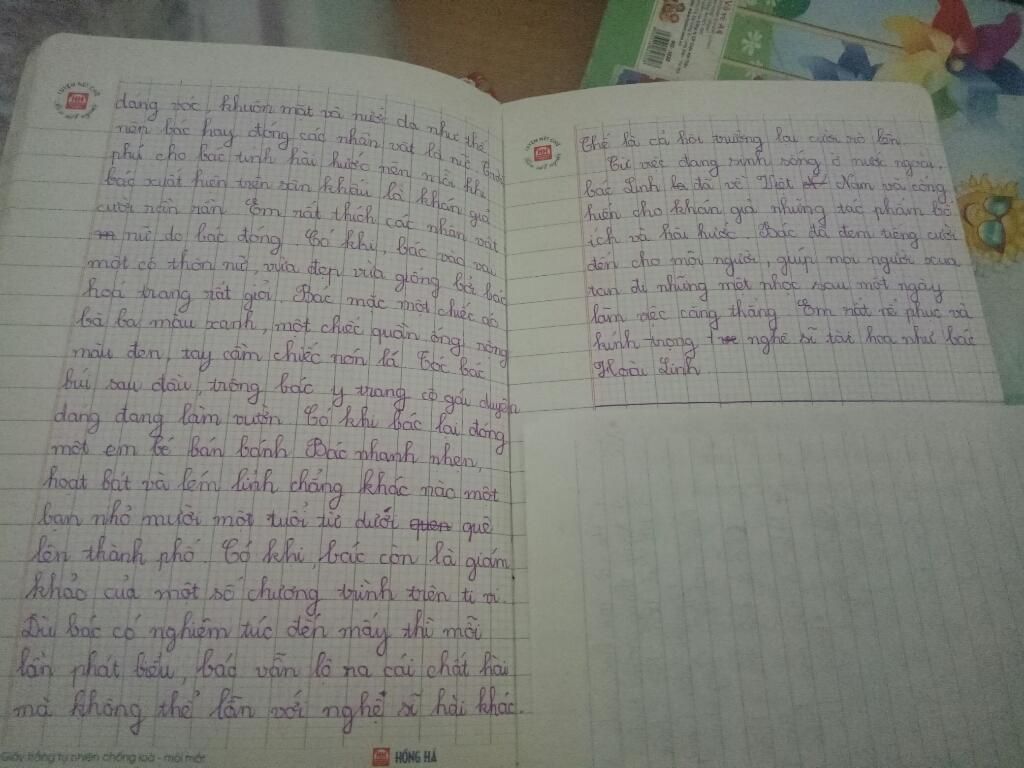 dáng vóc, khuôn mặt và nước da như thế
nên bác hay đóng các nhân vật là nữ. Trời
phú cho bác tính hài hước nên mỗi khi
bác xuất hiện trên sân khấu là khán giả
cười rần rần. Em rất thích các nhân vật
nữ do bác đóng. Có khi, bác vào vai
một cô thôn nữ, vừa đẹp vừa giống bởi bác
hoá trang rất giỏi. Bác mặc một chiếc áo
bà ba màu xanh, một chiếc quần ống rộng
màu đen, tay cầm chiếc nón lá. Tóc bác
búi sau đầu, trông bác y trang cô gái duyên
dáng đang làm vườn. Có khi bác lại đóng
một em bé bán bánh. Bác nhanh nhẹn,
hoạt bát và lém lỉnh chẳng khác nào một
bạn nhỏ mười một tuổi từ dưới quê
lên thành phố. Có khi, bác còn là giám
khảo của một số chương trình trên ti vi.
Dù bác có nghiêm túc đến mấy thì mỗi
lần phát biểu, bác vẫn lộ ra cái chất hài
mà không thể lẫn với nghệ sĩ hài khác.
Giấy trắng tự nhiên chống loá - mỏi mắt
HỒNG HÀ
Thế là cả hội trường lại cười vỡ lên.
Từ việc đang sinh sống ở nước ngoài,
bác Linh đã về Việt Nam và cống
hiến cho khán giả những tác phẩm bổ
ích và hài hước. Bác đã đem tiếng cười
đến cho mỗi người, giúp mọi người xua
tan đi những mệt nhọc sau một ngày
làm việc căng thẳng. Em rất nể phục và
kính trọng nghệ sĩ tài hoa như bác
Hoài Linh